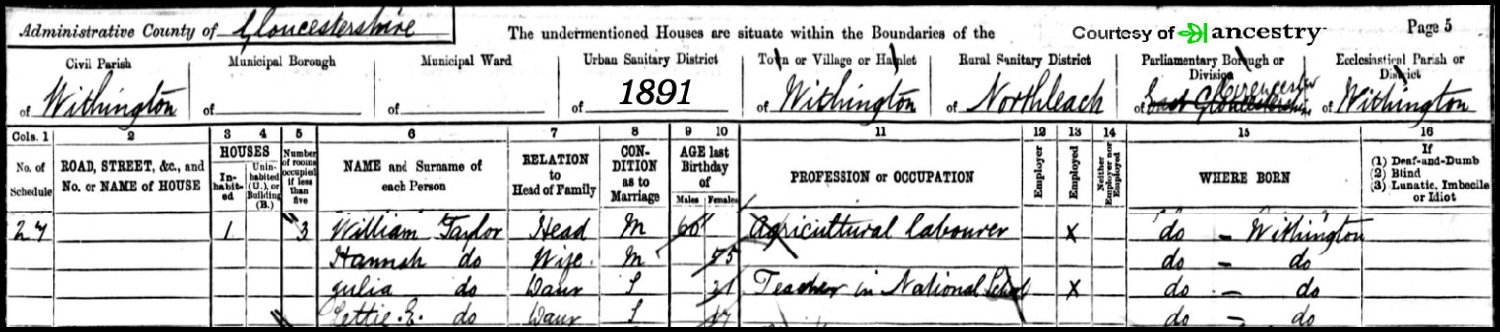 Administrative County of Gloucestershire The undermentioned Houses are situate within the Boundaries of the Courtesy of ancestry Page 5
Civil Parish Municipal Borough Municipal Ward Urban Sanitary District Town or Village or Hamlet Rural Sanitary District Parliamentary Borough or Division Ecclesiastical Parish or District
of Withington of of of 1891 of Withington of Northleach of East Gloucestershire Cirencester of Withington
Cols. 1 2 3 4 5 6 7 8 9 10 11 12 13 14 15 16
No. of Schedule ROAD, STREET, &c., and No. or NAME of HOUSE HOUSES In-habit-ed Unin-habited (U.), or Building (B.) Number of rooms occupied if less than five NAME and Surname of each Person RELATION to Head of Family CON-DITION as to Marriage AGE last Birthday of Males Females PROFESSION or OCCUPATION Employer Employed Neither Employer nor Employed WHERE BORN If (1) Deaf-and-Dumb (2) Blind (3) Lunatic, Imbecile or Idiot
27 1 3 William Taylor Head M 60 Agricultural labourer x do - Withington
Hannah do Wife. M 55 do - do
Julia do Daur S 21 Teacher in National School x do - do
Lettie. E. do Daur S 17 do - do